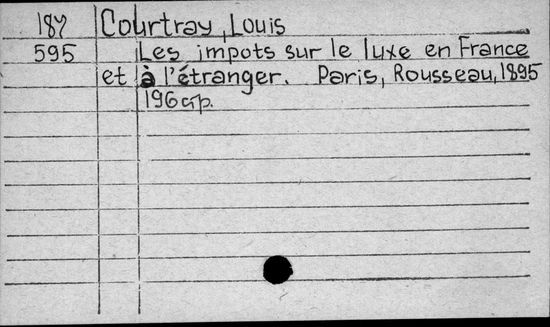 187 Courtray, Louis
595 Les impots sur le luxe en France
et à l'étranger. Paris, Rousseau, 1895
196 p.